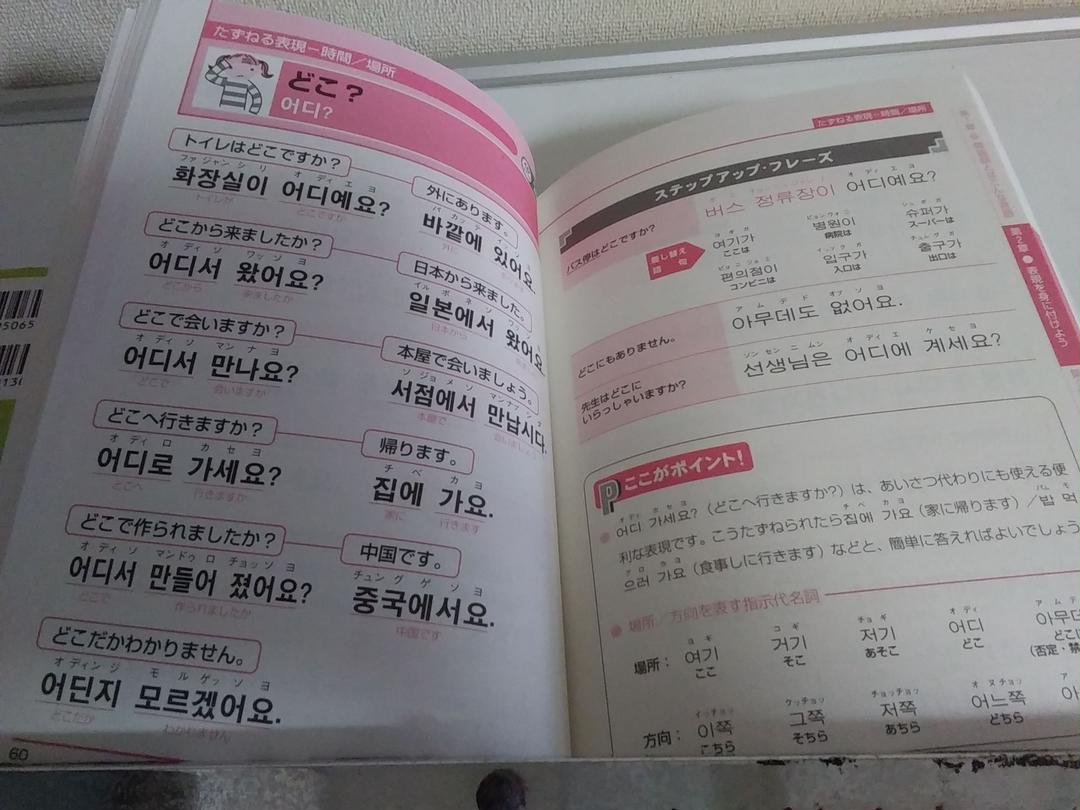 たずねる表現－時間／場所
どこ？
어디?
トイレはどこですか？
ファ ジャン シ ー リ オ ディ エ ヨ
화장실이 어디예요?
トイレが どこですか
外にあります。
바깥에 있어요.
外に
どこから来ましたか？
オ ディ ソ ワッ ソ ヨ
어디서 왔어요?
どこから 来ましたか
日本から来ました。
일본에서 왔어요
日本から
どこで会いますか？
オ ディ ソ マン ナ ヨ
어디서 만나요?
どこで 会いますか
本屋で会いましょう。
서점에서 만납시다.
本屋で
どこへ行きますか？
オ ディ ロ カ セ ヨ
어디로 가세요?
どこへ 行きますか
帰ります。
チ ベ カ ヨ
집에 가요.
家に 行きます
どこで作られましたか？
オ ディ ソ マンドゥ ロ チョッ ソ ヨ
어디서 만들어 졌어요?
どこで 作られましたか
中国です。
チュン グ ゲ ソ ヨ
중국에서요.
中国です
どこだかわかりません。
オ ディン ジ モ ル ゲッ ソ ヨ
어딘지 모르겠어요.
どこだか わかりません
60
たずねる表現－時間／場所
ステップアップ・フレーズ
バス停はどこですか？
버스 정류장이 어디예요?
差し替え語句
여기가 병원이 슈퍼가
ここは 病院は スーパーは
편의점이 입구가 출구가
コンビニは 入口は 出口は
どこにもありません。
ア ム デ ド オプ ソ ヨ
아무데도 없어요.
先生はどこに
いらっしゃいますか？
ソン セン ニ ムン オ ディ エ ケ セ ヨ
선생님은 어디에 계세요?
第2章●表現を身に付けよう
P ここがポイント！
● 어디 가세요?（どこへ行きますか？）は、あいさつ代わりにも使える便
利な表現です。こうたずねられたら집에 가요（家に帰ります）／밥 먹
으러 가요（食事しに行きます）などと、簡単に答えればよいでしょう
● 場所／方向を表す指示代名詞
ヨ ギ コ ギ チョ ギ オ ディ
場所： 여기 거기 저기 어디 아무데
ここ そこ あそこ どこ
イッチョッ クッチョッ チョッチョッ オ ヌチョッ
方向： 이쪽 그쪽 저쪽 어느쪽
こちら そちら あちら どちら